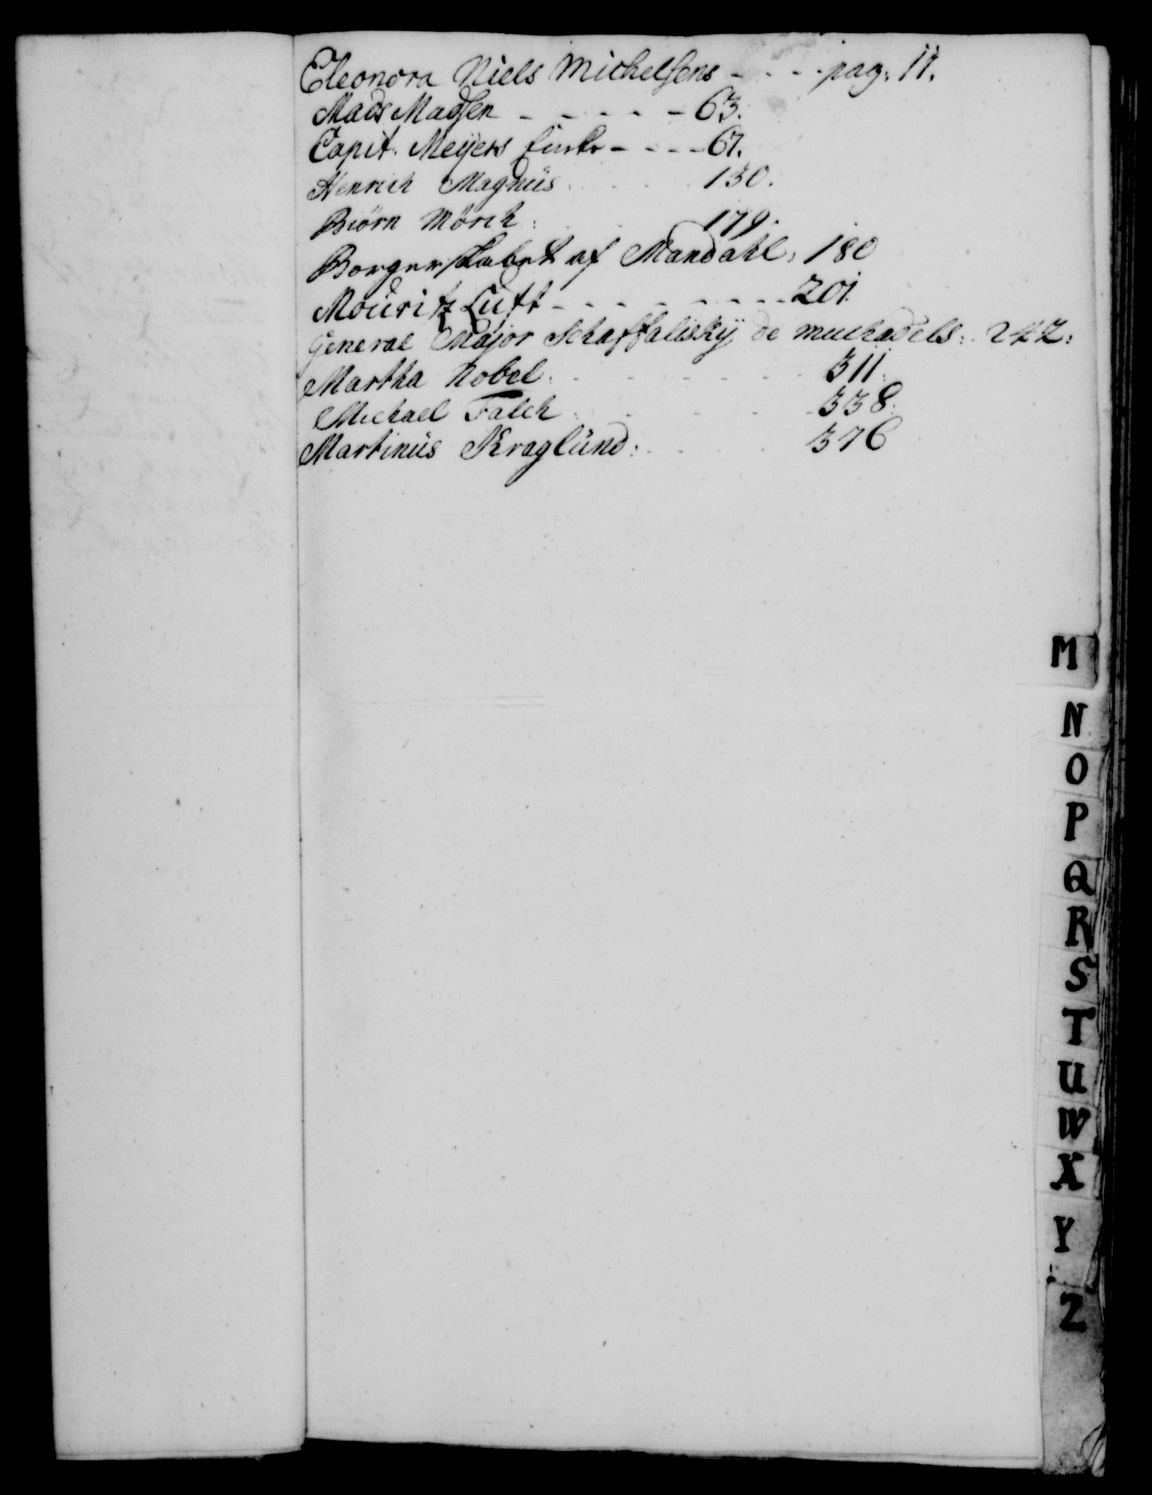 Eleonora Niels Michelsens - - - - pag: 11.
Mads Madsen - - - - - 63.
Capit. Meyers Encke - - - - 67.
Henrich Magnus . . . . 130.
Biørn Mørch : . . . 179.
Borgerskabet af Mandahl, 180
Mouritz Luft - - - - - - - - - 201.
General Major Schaffalisky de muckadels: 242:
Martha Nobel . . . . . . 311.
Michael Falch . . . . 338.
Martinus Kraglund: . . . . 376
M
N
O
P
Q
R
S
T
U
W
X
Y
Z